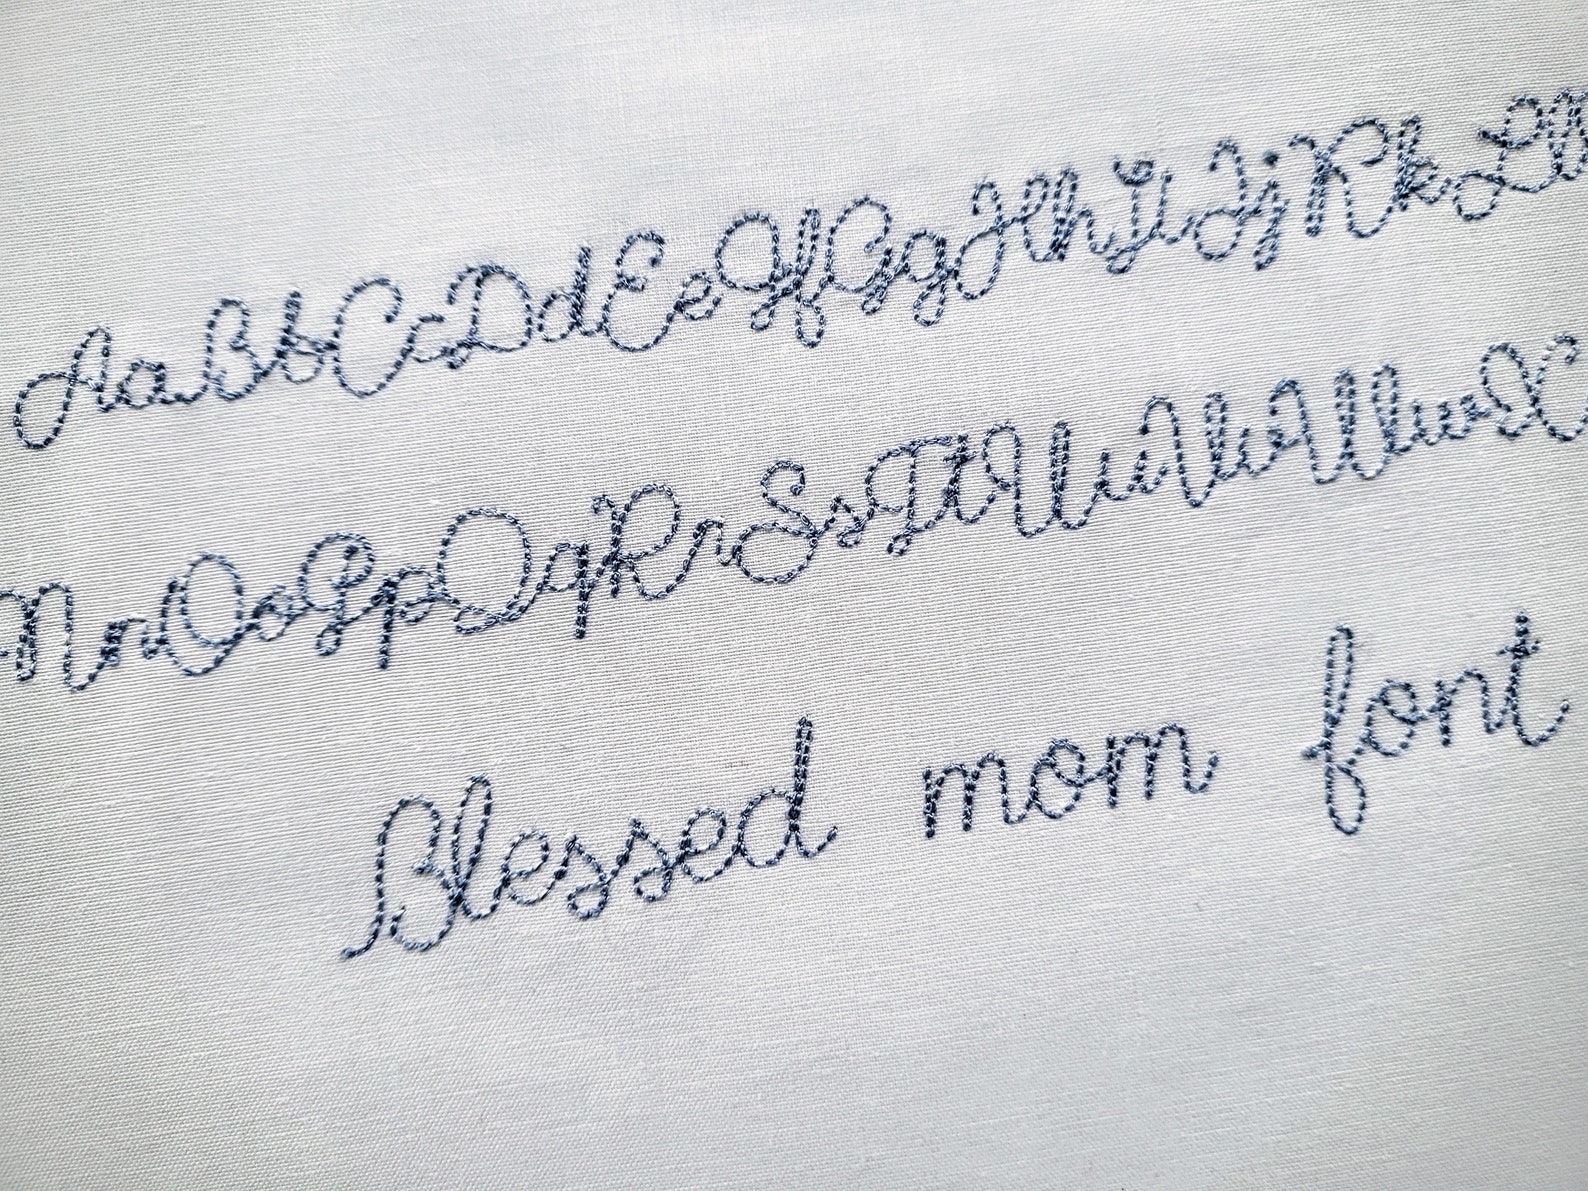 AaBbCcDdEeFfGgHhIiJjKkLl
NnOoPpQqRrSsTtUuVvWwX
Blessed mom font